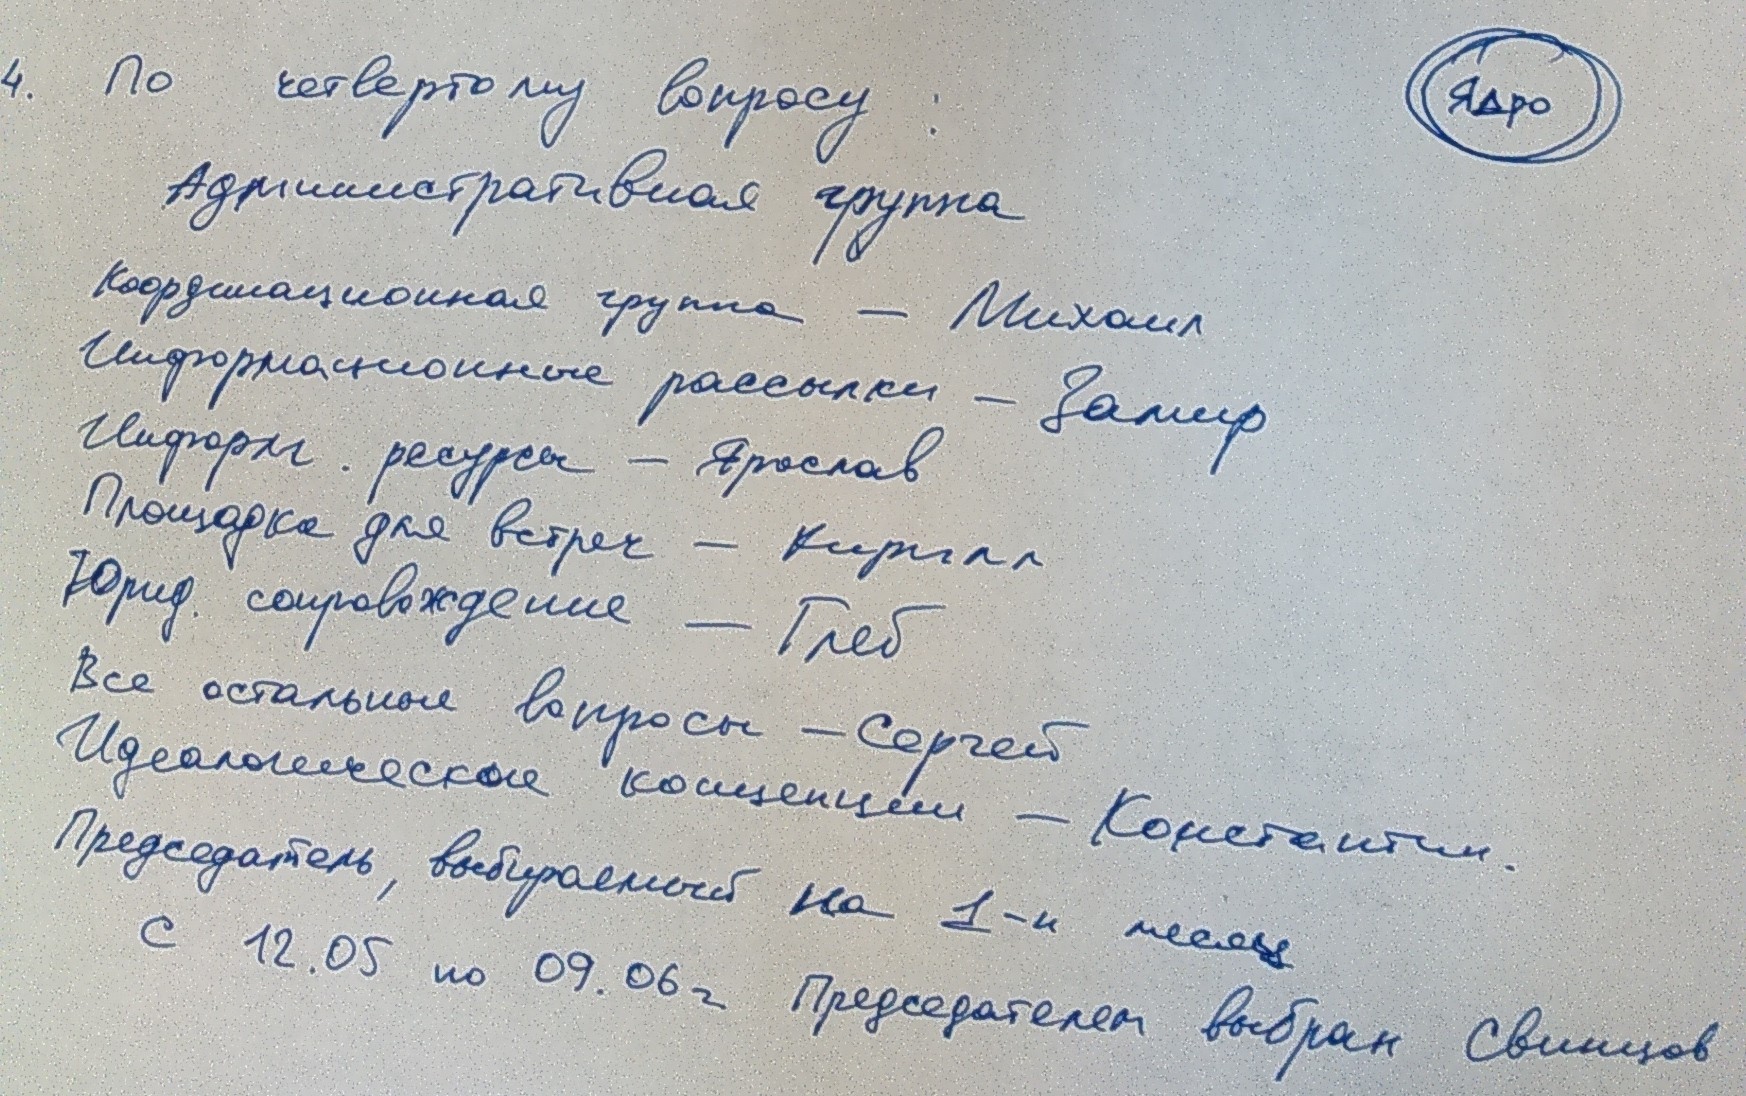 4. По четвертому вопросу:
Ядро
Административная группа
Координационная группа — Михаил
Информационные рассылки — Замир
Информ. ресурсы — Ярослав
Площадка для встреч — Кирилл
Юрид. сопровождение — Глеб
Все остальные вопросы — Сергей
Идеологические концепции — Константин.
Председатель, выбираемый на 1-н месяц
С 12.05 по 09.06 г Председателем выбран Свинцов